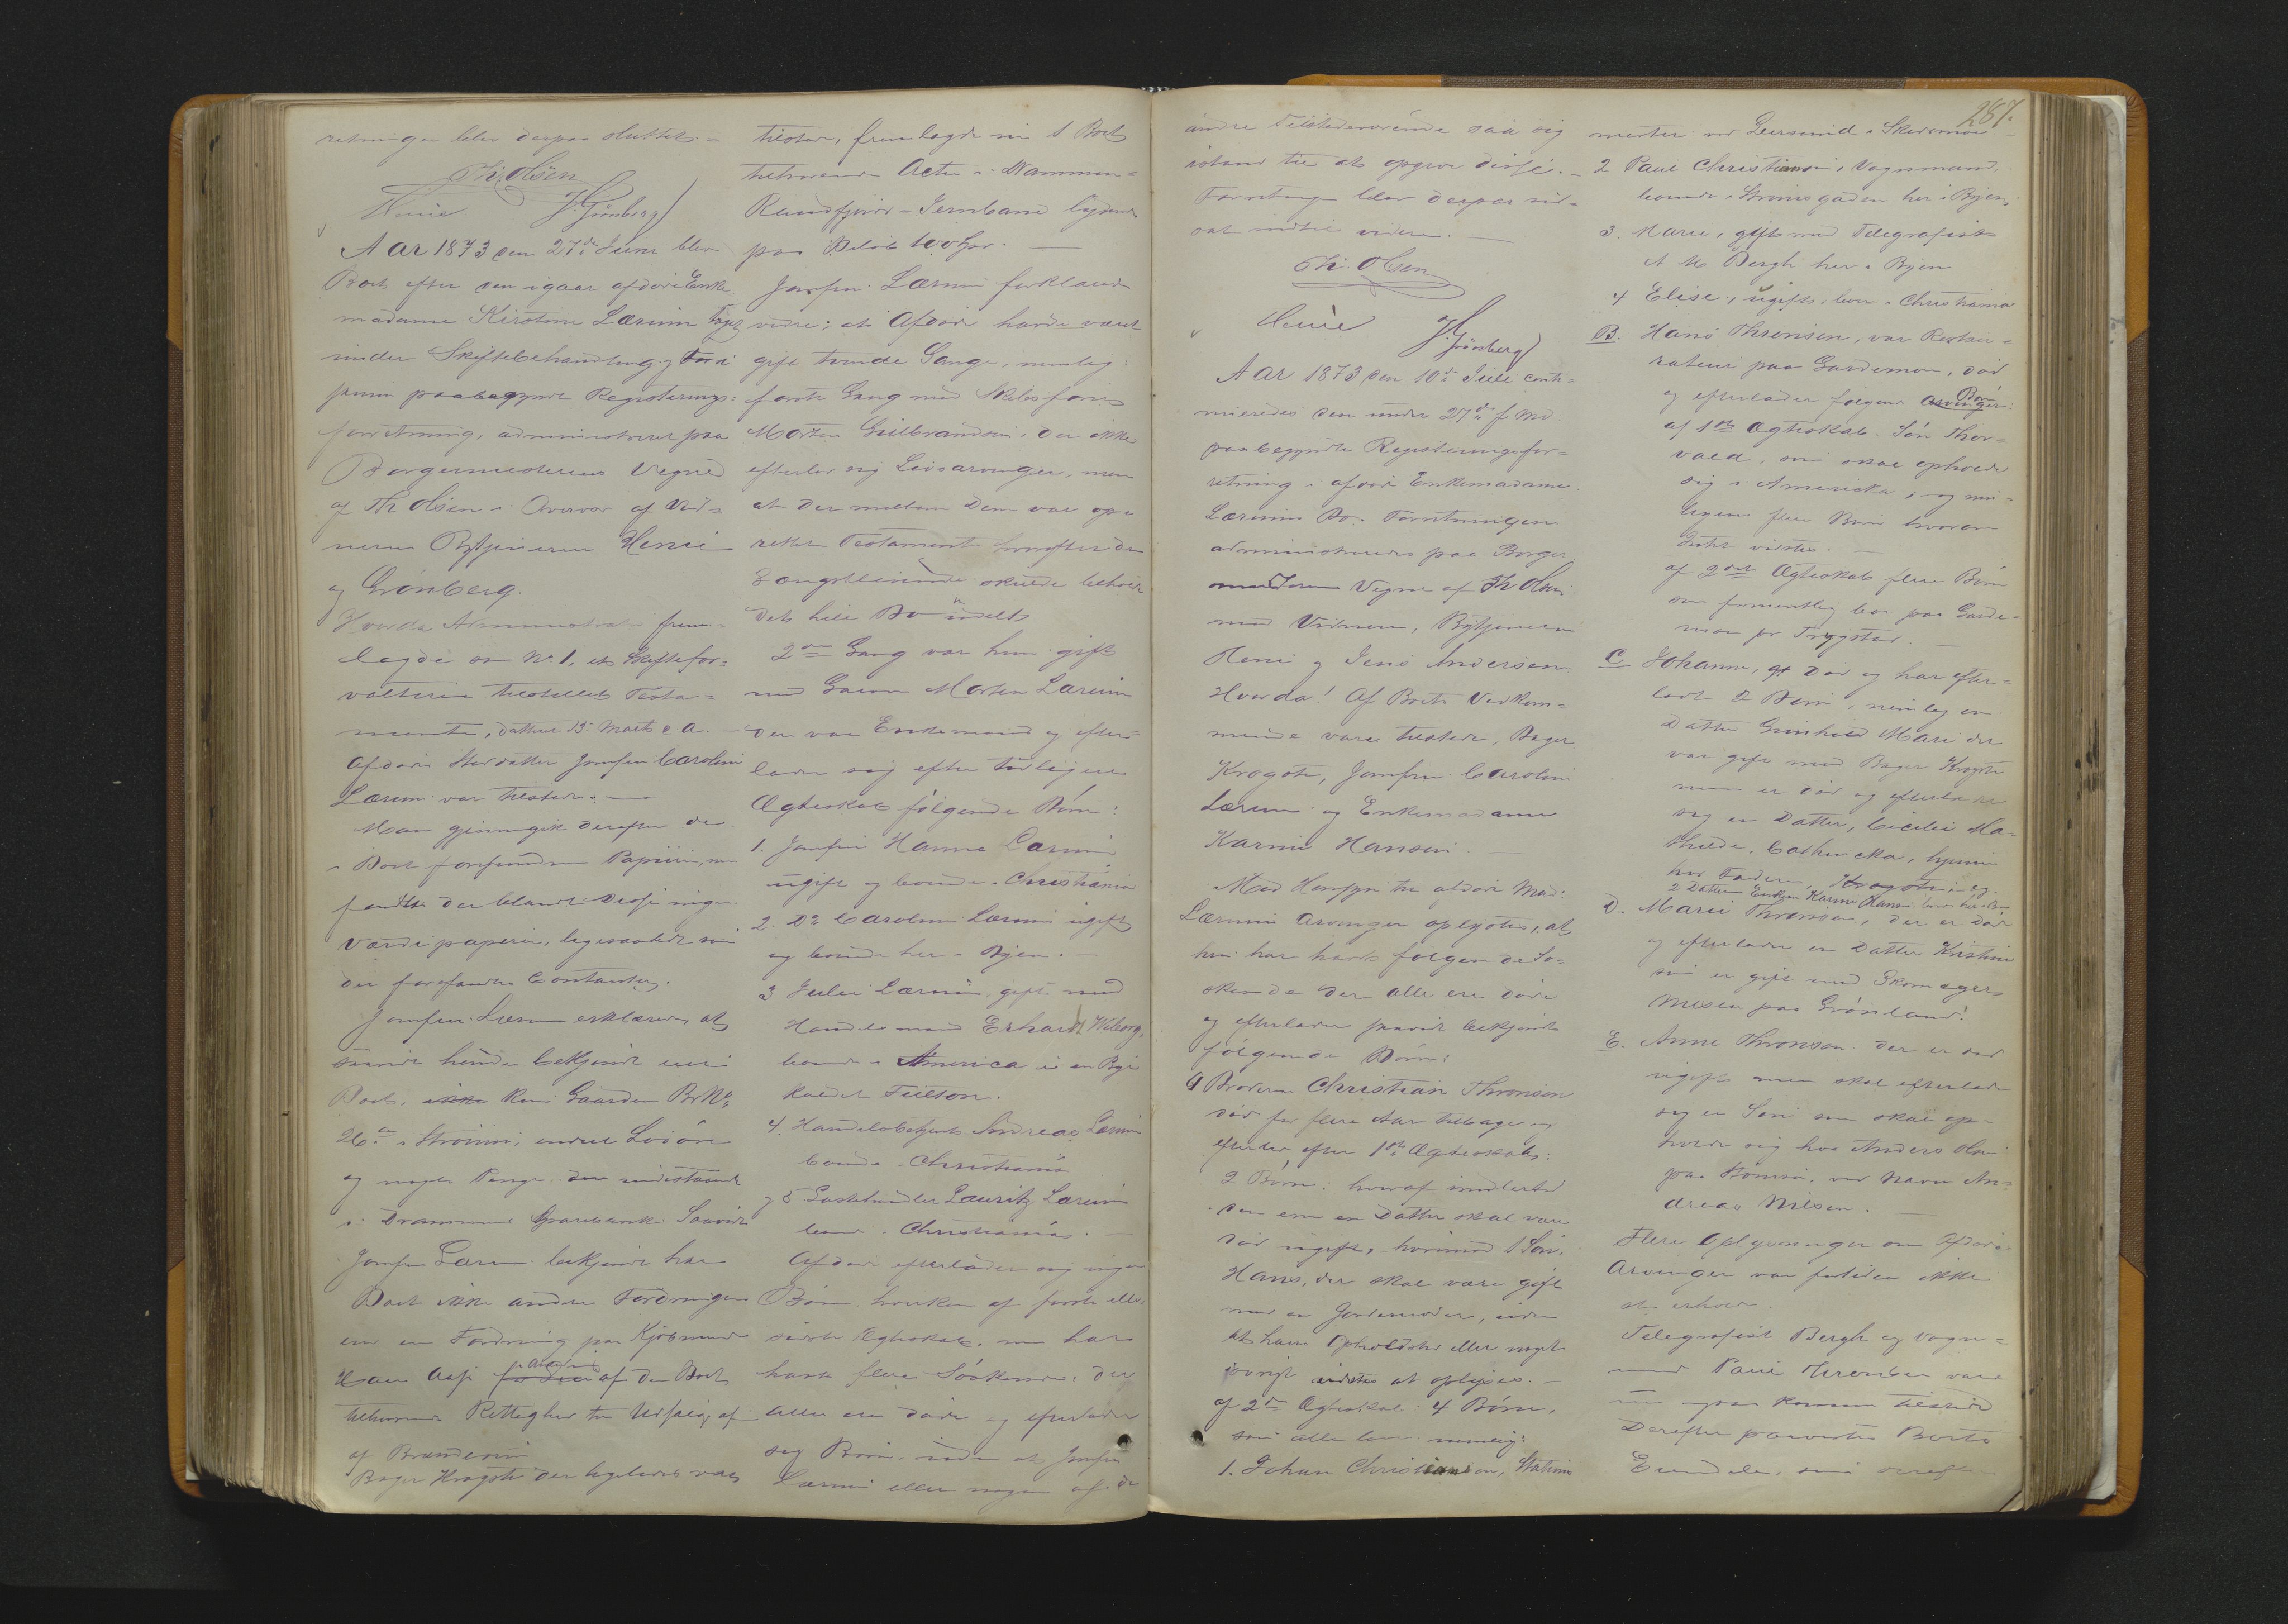 retningen blev derpaa sluttet. –
Th. Olsen
Henie J. Grönberg
Aar 1873 den 27de Juni blev
Boet efter den igaar afdøde Enke
madame Kirstine Lærum taget
under Skiftebehandling og
paabegyndt Registrerings=
forretning, administreret paa
Borgermesterens Vegne
af Th Olsen i Overvær af Vid=
nerne Bytjenerne Henie
og Grönberg.
Hvorda Administrator frem=
lagde som No 1, et Skiftefor=
valteren tilstillet Testa=
mente, dateret 15 Marts d. A. –
Afdødes Steddatter Jomfru Caroline
Lærum var tilstede. –
Man gjennemgik derefter de
i Boet forefundne Papirer, men
fandtes der blandt disse ingen
Værdipapirer, ligesaalidt som
der forefandtes Contanter.
Jomfru Lærum erklærede, at
saavidt hende bekjendt eier
Boet, ikke Gaarden BNo
26 a i Strömsö, endeel Lösöre
og nogle Penge, indestaaende
i Drammens Sparebank. Saavidt
Jomfru Lærum bekjendt har
Boet ikke andre Fordringer
end en Fordring paa Kjöbmand
af den Boet
tilhørende Rettighed til Udsalg af
af Brændeviin
Bager Krogstie der ligeledes var
tilstede, fremlagde en Boet
tilhørende Actie i Drammen=
Randsfjord-Jernbane lydende
paa Beløb 100 Spd. –
Jomfru Lærum forklarede
videre; at Afdøde havde været
gift tvende Gange, nemlig:
første Gang med Skibsfører
Morten Gulbrandsen, der ikke
efterlod sig Livsarvinger, men
at der mellem Dem var op=
rettet Testament hvorefter den
Længstlevende skulde beholde
det hele Bo udelt
2den Gang var hun gift
med Morten Lærum
der var Enkemand og efter=
lader sig efter tidligere
Ægteskab følgende Børn:
1. Jomfru Hanna Lærum
ugift og boende i Christiania
2. Do Caroline Lærum ugift
og boende her i Byen. –
3 Julie Lærum, gift med
Handelsmand Erhardt Wiborg,
boende i America i en By
kaldet Fulton.
4. Handelsbetjent Andreas Lærum
boende i Christiania
og 5 Lauritz Lærum
boende i Christiania. –
Afdøde efterlader sig ingen
Børn hverken af første eller
sidste Ægteskab, men har
havt flere Söskende, der
alle ere døde og efterlader
sig Børn, uden at Jomfru
Lærum eller nogen af de
287.
andre Tilstedeværende saa sig
istand til at opgive disse. –
Forretningen blev derpaa ud=
sat indtil videre. –
Th. Olsen
Henie J. Grönberg
Aar 1873 den 10de Juli conti=
nueredes den under 27de f. Md.
paabegyndte Registreringsfor=
retning i afdøde Enkemadame
Lærums Bo. Forretningen
administreredes paa Borger
mesterens Vegne af Th Olsen
med Vidnerne, Bytjenerne
Henie og Jens Andersen
Hvorda! Af Boets Vedkom=
mende vare tilstede, Bager
Krogstie, Jomfru Caroline
Lærum og Enkemadame
Karine Hansen –
Med Hensyn til afdøde Mad:
Lærums Arvinger oplystes, at
hun har havt følgende Sö=
skende der alle ere døde
og efterlader saavidt bekjendt
følgende Børn:
A Broderen Christian Thronsen
död for flere Aar tilbage og
efterlod efter 1ste Ægteskab:
2 Børn: hvoraf imidlertid
den ene en Datter skal være
död ugift, hvorimod 1 Sön,
Hans, der skal være gift
med en Jordemoder, uden
at hans Opholdsted eller noget
øvrigt vidstes at oplyses. –
af 2det Ægteskab: 4 Børn,
som alle lever nemlig:
1. Johan Christiansen, Stations
mester ved Leersund i Skedsmoe –
2 Paul Christiansen, Vognmand,
boende i Strømsgaden her i Byen,
3. Marie, gift med Telegrafist
A M Bergh her i Byen
4 Elise, ugift, boer i Christiania
B. Hans Thronsen, var Restau=
ratør paa Gardemoen, död
og efterlader følgende Arvinger: Børn
af 1ste Ægteskab. Sön Thor=
vald, som skal opholde
sig i Amerika, og mu=
ligens flere Børn hvorom
Intet vidstes. –
af 2det Ægteskab flere Børn
som formentlig boer paa Garde=
moen pr Trygstad. –
C Johanne, er död og har efter=
ladt 2 Børn, nemlig en
Datter Gunhild Marie der
var gift med Bager Krogstie
men er död og efterlader
sig en Datter, Cicilie Ma=
thilde Cathrinka, hjemme
hos Faderen, Krogstie, og
2 Datteren Enkefru Karine Hansen boer her i Byen
D. Marie Thronsen, der er död
og efterlader en Datter Kristine
som er gift med Skomager
Nilsen paa Grønland!
E. Anne Thronsen der er död
ugift men skal efterlade
sig en Sön som skal op=
holde sig hos Anders Olsen
paa Strömsö, ved Navn An=
dreas Nilsen. –
Flere Oplysninger om Afdødes
Arvinger var fortiden ikke
at erholde.
Telegrafist Bergh og Vogn=
mand Paul Thronsen vare
nu ogsaa kommen tilstede
Derefter paavistes Boets
Eiendele, som derefter